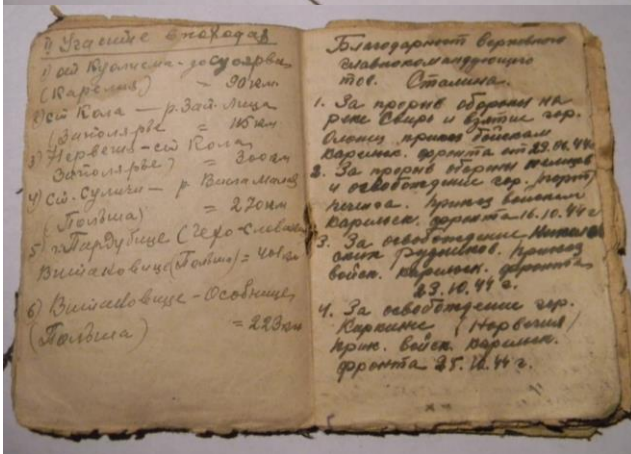 1) Участие в походах
1) ст Куолисма - до Суоярви
(Карелия) - 90 км.
2) ст Кола — р. Зап. Лица
(Заполярье = 115 км
3) - ст Кола
Заполярье) = 300 км
4) ст. - р. Висла
(Польша) = 270 км
5) г. Пардубице (Чехо-
(Польша) =
6) - Особнице
(Польша) = 223 км
Благодарност верховного
главнокомандующего
тов. Сталина.
1. За прорыв обороны на
реке Свирь и взятие гор.
Олонец приказ войскам
Карельск. фронта от 29.06.44г
2. За прорыв обороны немцев
и освобождение гор. (порт)
Печенга. приказ войскам
карельск. фронта 16.10.44 г
3. За освобождение
рудников. Приказ
войск. карельск. фронта
23.10.44 г.
4. За освобождение гор.
Киркинес (Норвегия)
прик. войск. карельск.
фронта 25.10.44 г.